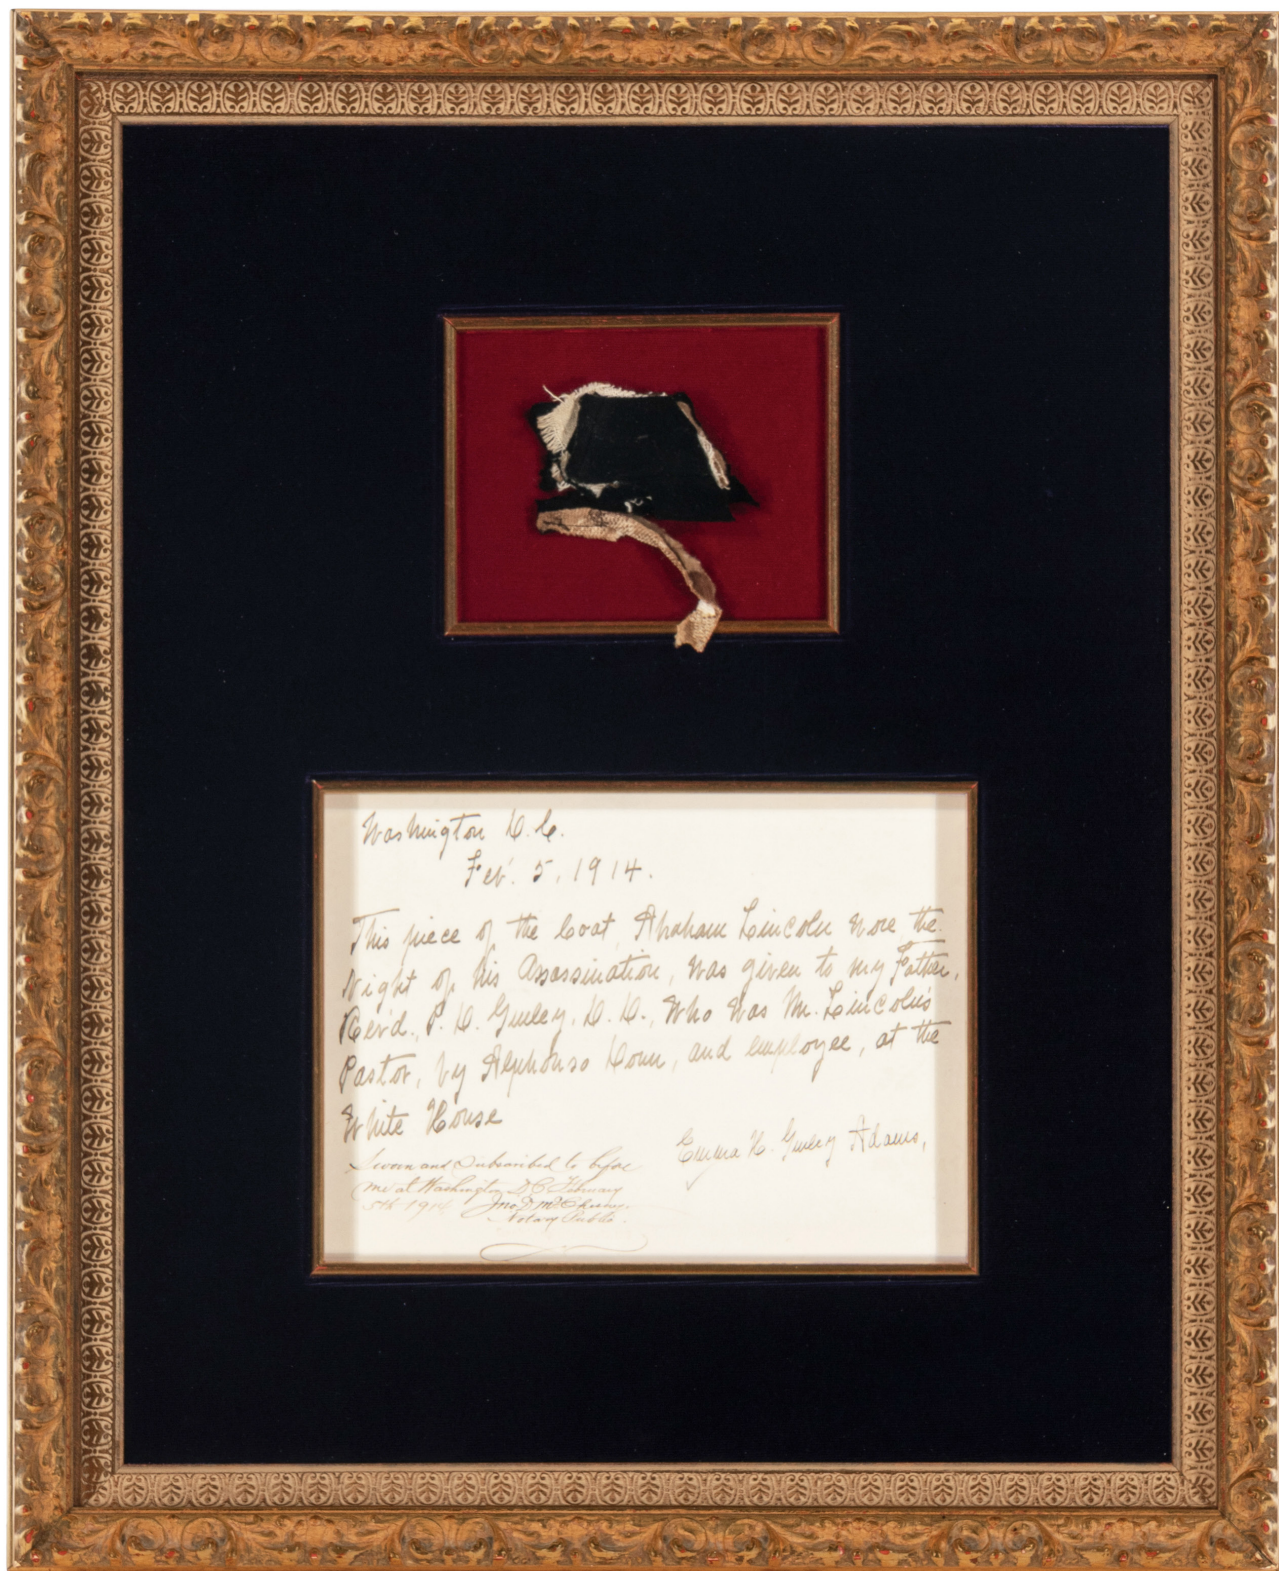 Washington D.C.
Feb. 5, 1914.
This piece of the Coat, Abraham Lincoln wore the
Night of his Assassination, was given to my Father,
Rev'd. P. D. Gurley, D. D., Who was Mr. Lincoln's
Pastor, by Alphonso Donn, and employee, at the
White House
Emma H. Gurley Adams,
Sworn and Subscribed to before
me at Washington D.C. February
5th 1914 Jno. D. McChesney.
Notary Public.